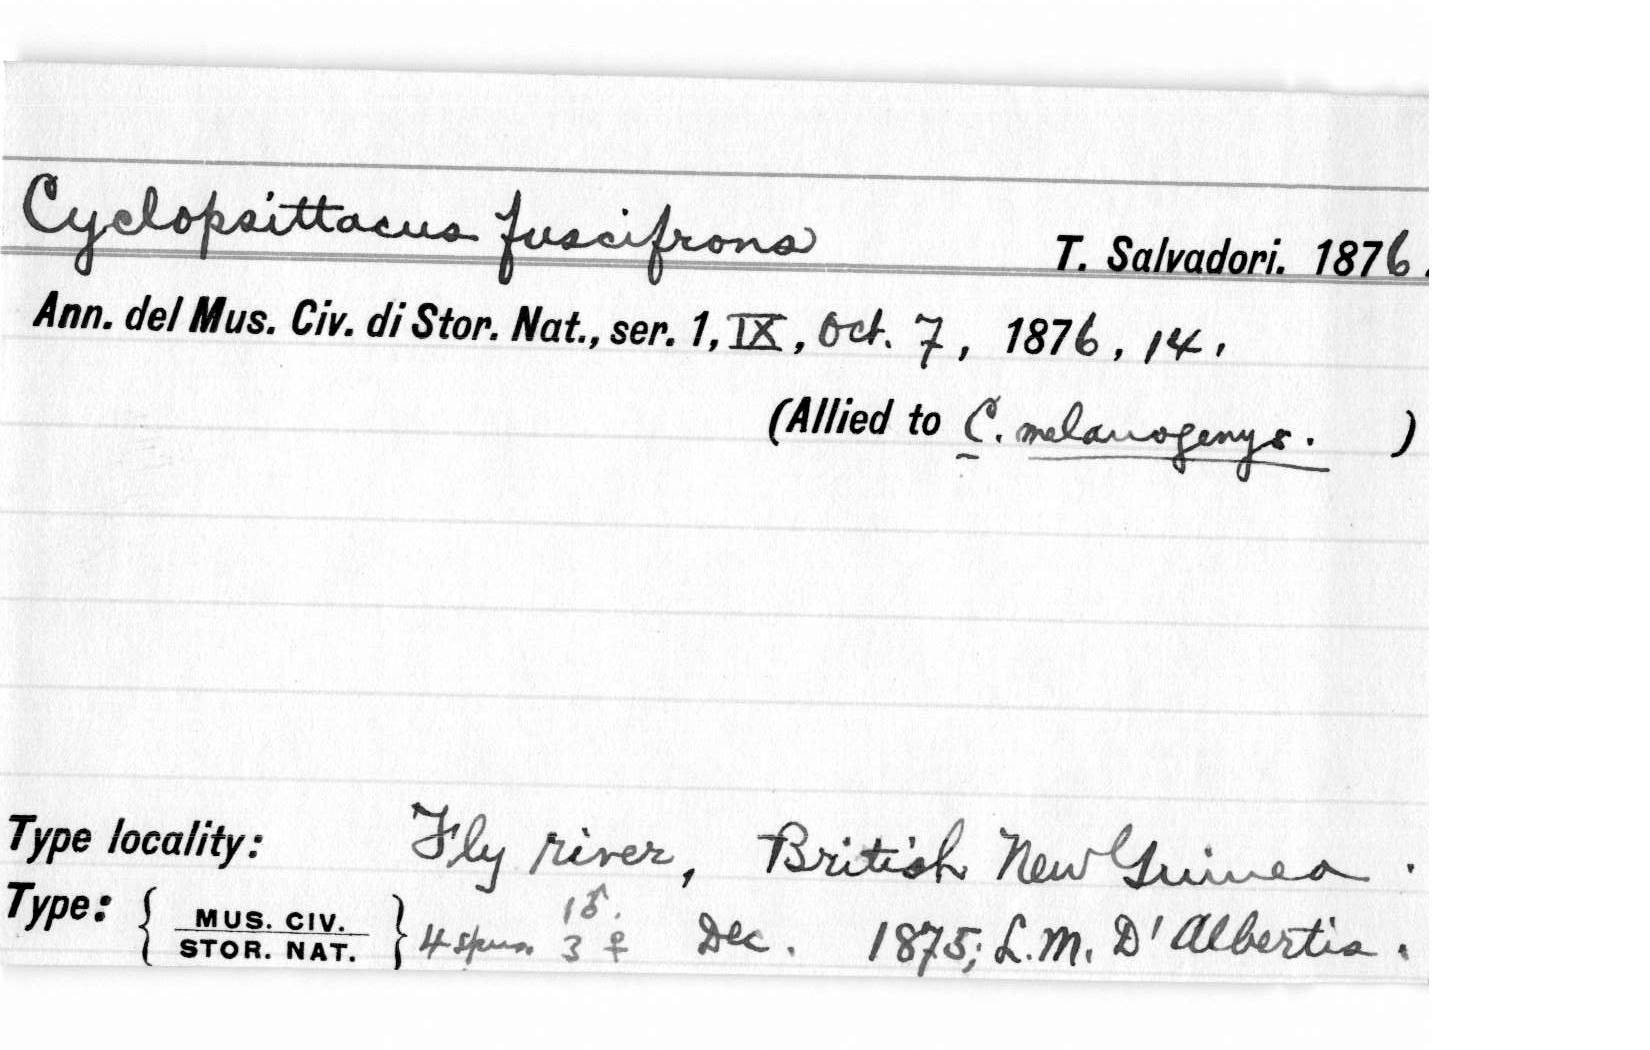 Cyclopsittacus fuscifrons T. Salvadori. 1876.
Ann. del Mus. Civ. di Stor. Nat., ser. 1, IX, Oct. 7, 1876, 14.
(Allied to C. melanogenys. )
Type locality: Fly river, British New Guinea.
1♂.
Type: { MUS. CIV. STOR. NAT. } 4 spms. 3 ♀ Dec. 1875; L.M. D'Albertis.